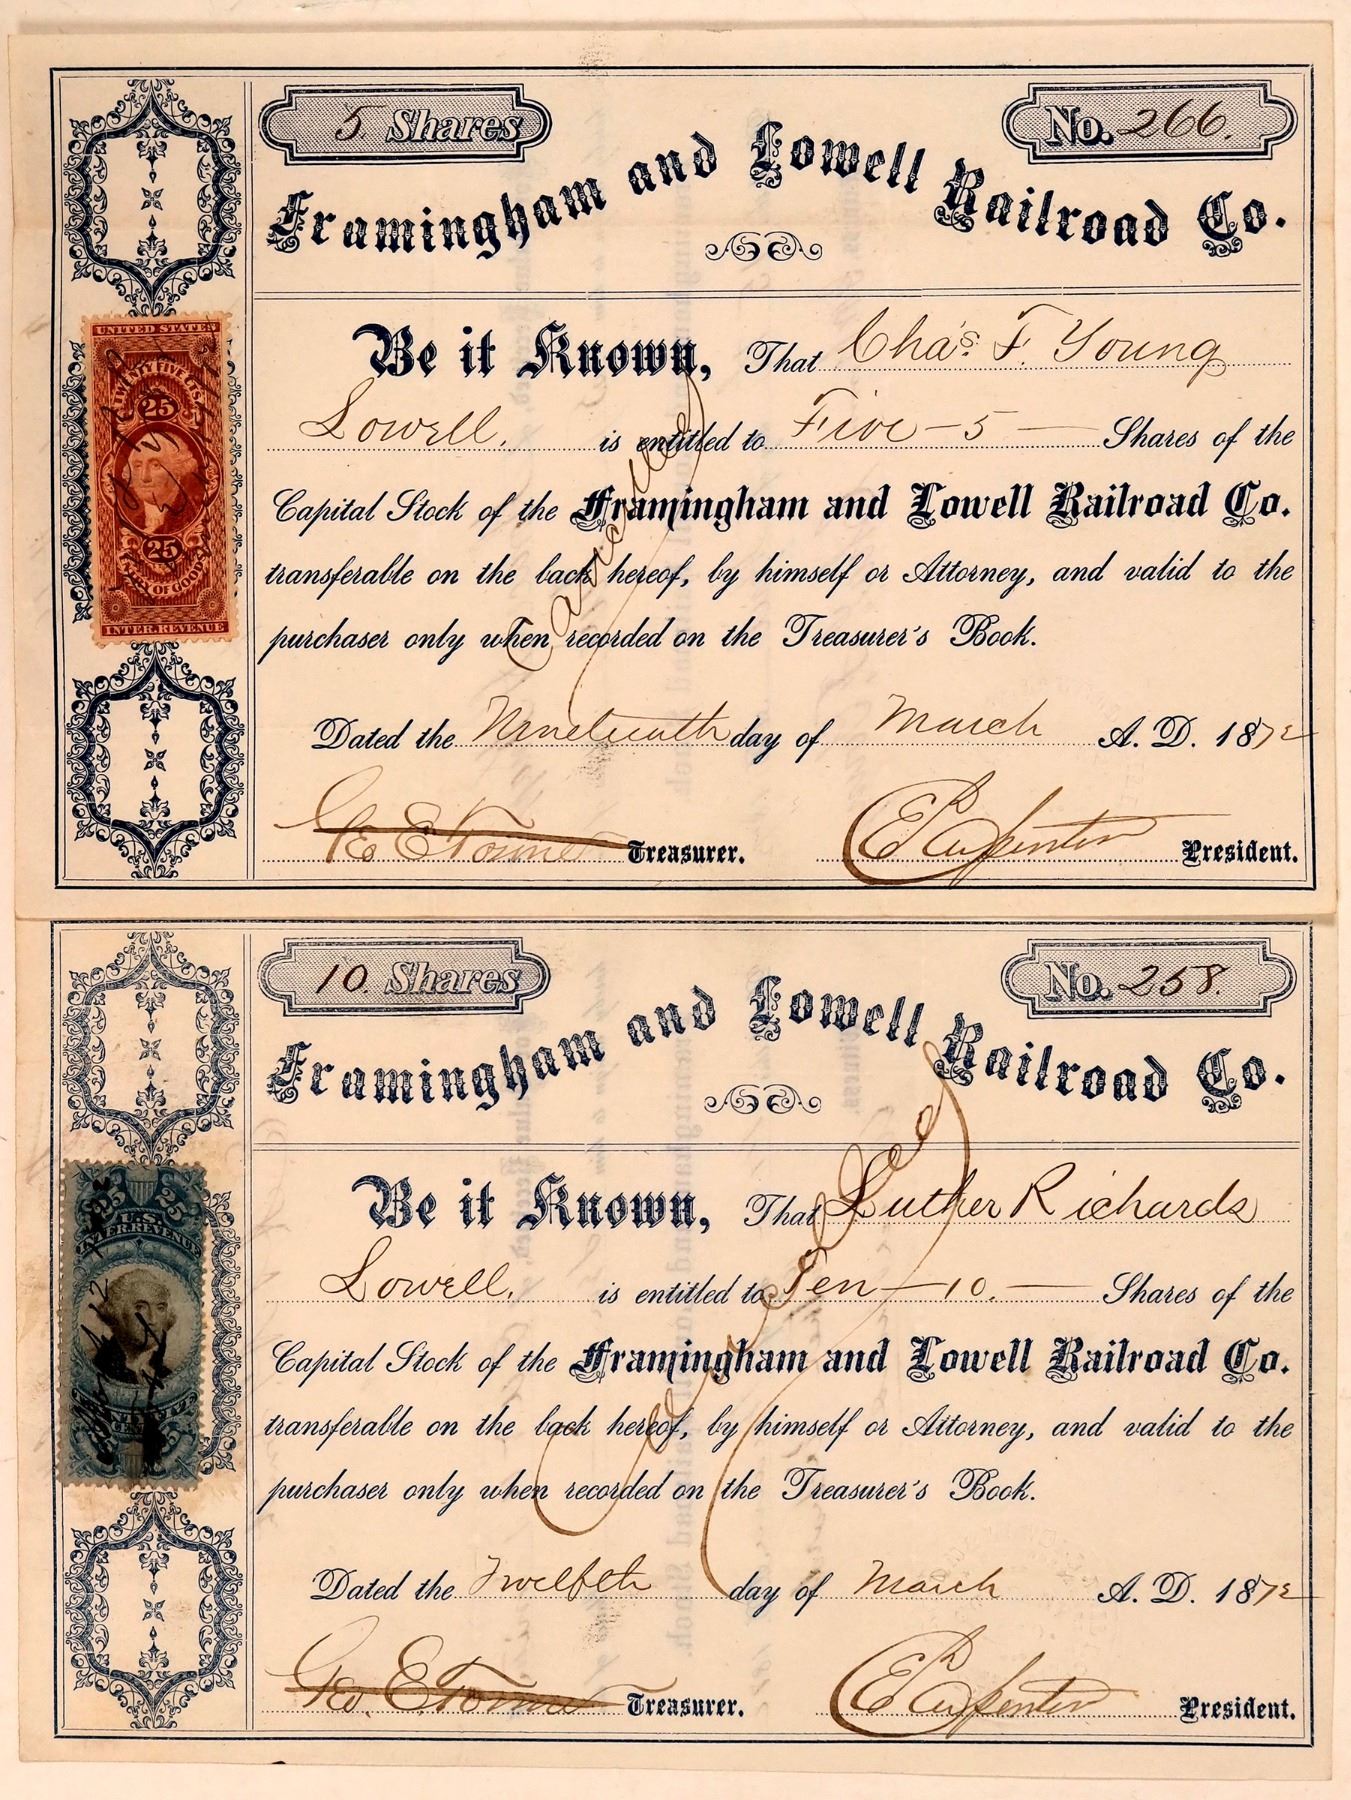 5 Shares
No. 266.
Framingham and Lowell Railroad Co.
UNITED STATES
TWENTY FIVE CTS.
25
25
ENTRY OF GOODS
INTER. REVENUE
Be it Known, That Cha's. F. Young
Lowell. is entitled to Five - 5 - Shares of the
Capital Stock of the Framingham and Lowell Railroad Co.
transferable on the back hereof, by himself or Attorney, and valid to the
purchaser only when recorded on the Treasurer's Book.
Cancelled
Dated the Nineteenth day of March A. D. 1872
Geo E Towne Treasurer.
E P Carpenter President.
10. Shares
No. 258.
Framingham and Lowell Railroad Co.
25 25
U.S.
INTER. REVENUE
Be it Known, That Luther Richards
Lowell. is entitled to Ten - 10. - Shares of the
Capital Stock of the Framingham and Lowell Railroad Co.
transferable on the back hereof, by himself or Attorney, and valid to the
purchaser only when recorded on the Treasurer's Book.
Cancelled
Dated the Twelfth day of March A. D. 1872
Geo. E. Towne Treasurer.
E P Carpenter President.